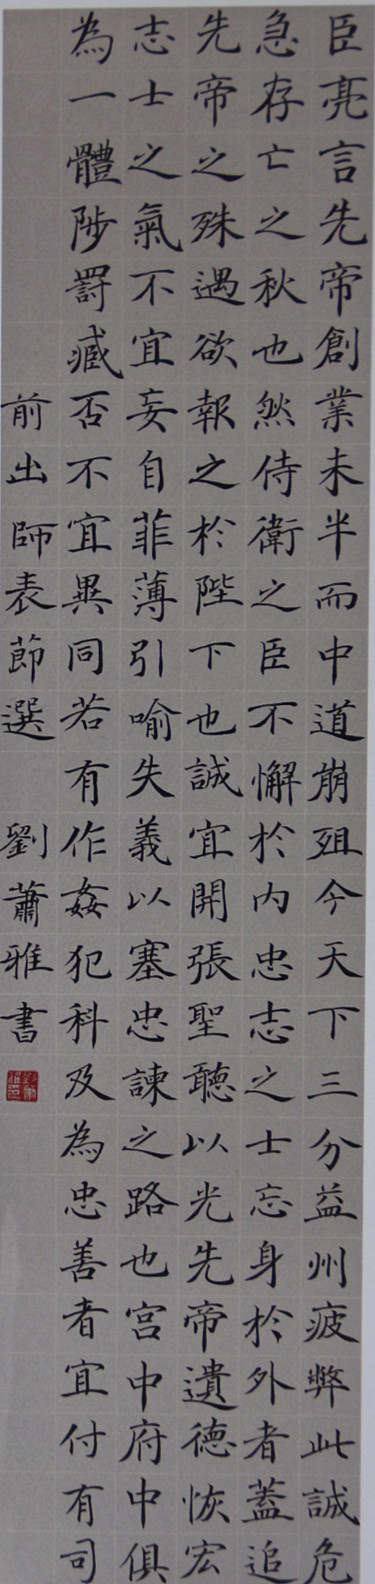 臣亮言先帝創業未半而中道崩殂今天下三分益州疲弊此誠危
急存亡之秋也然侍衛之臣不懈於內忠志之士忘身於外者蓋追
先帝之殊遇欲報之於陛下也誠宜開張聖聽以光先帝遺德恢宏
志士之氣不宜妄自菲薄引喻失義以塞忠諫之路也宮中府中俱
為一體陟罰臧否不宜異同若有作姦犯科及為忠善者宜付有司
前出師表節選 劉蕭雅書